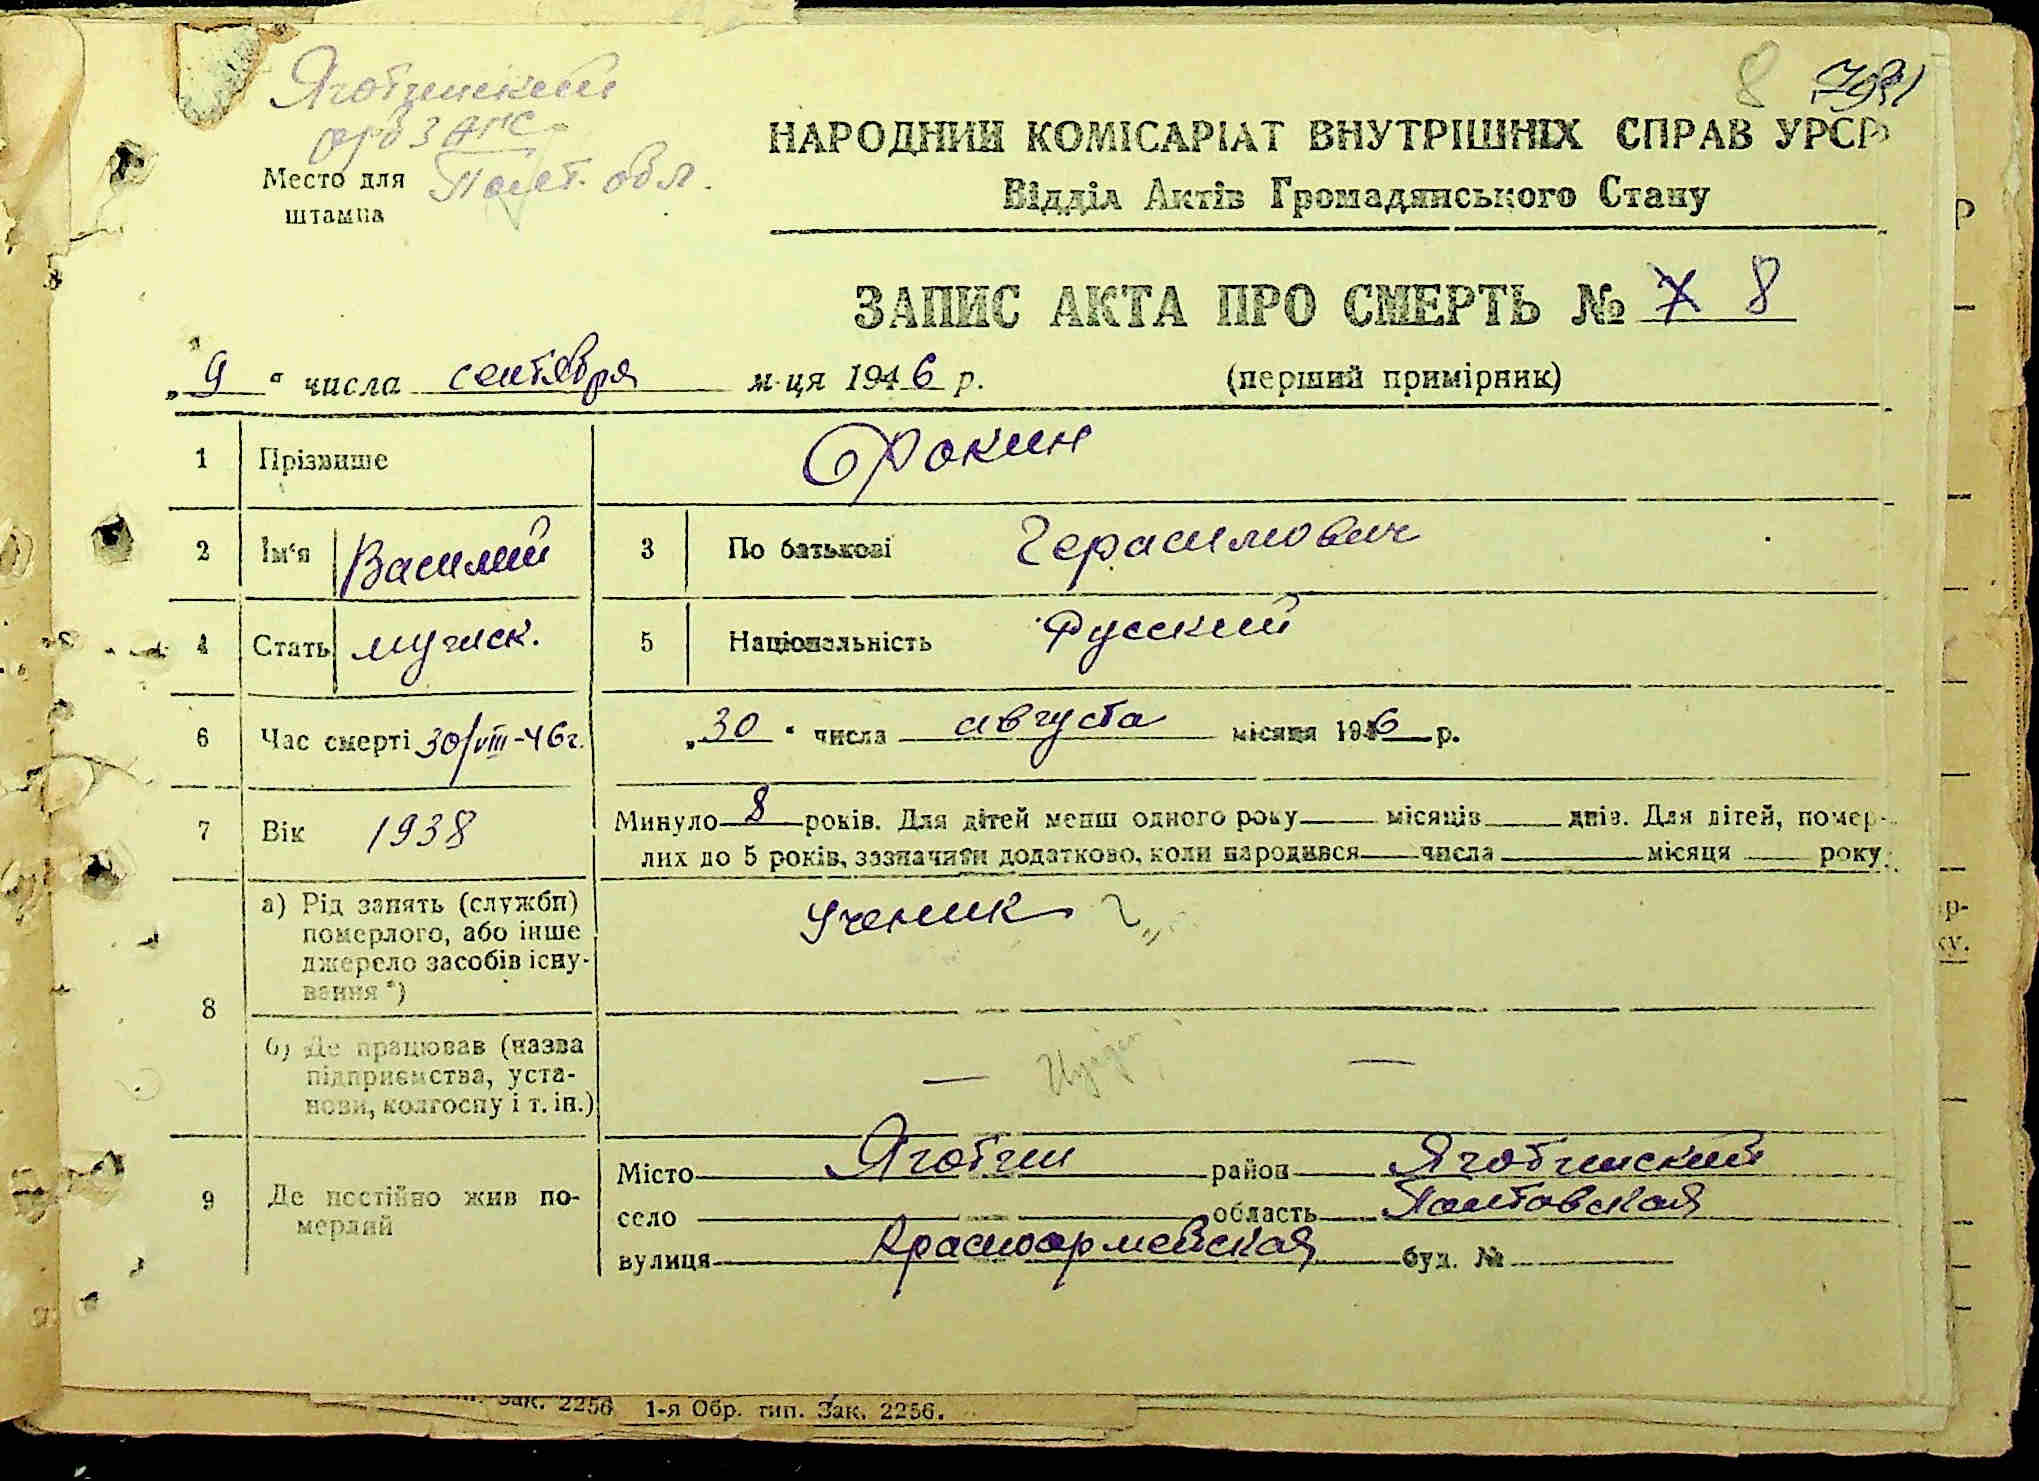 8 7991
Яготинский
орб ЗАГС
Полт. обл.
Место для
штампа
НАРОДНИЙ КОМІСАРІАТ ВНУТРІШНІХ СПРАВ УРСР
Відділ Актів Громадянського Стану
ЗАПИС АКТА ПРО СМЕРТЬ № 8
„9“ числа сентября м-ця 1946 р. (перший примірник)
1 Прізвище Фокин
2 Ім'я Василий 3 По батькові Герасимович
4 Стать мужск. 5 Національність Русский
6 Час смерті 30/VIII-46г. „30“ числа августа місяця 1946 р.
7 Вік 1938 Минуло 8 років. Для дітей менш одного року місяців днів. Для дітей, помер-
лих до 5 років, зазначити додатково, коли народився числа місяця року
8 а) Рід занять (служби)
померлого, або інше
джерело засобів існу-
вання*)
Ученик
б) Де працював (назва
підприємства, уста-
нови, колгоспу і т. ін.)
— —
9 Де постійно жив по-
мерлий
Місто Яготин район Яготинский
село область Полтовская
вулиця Красноармейская буд. №
Зак. 2256 1-я Обр. тип. Зак. 2256.